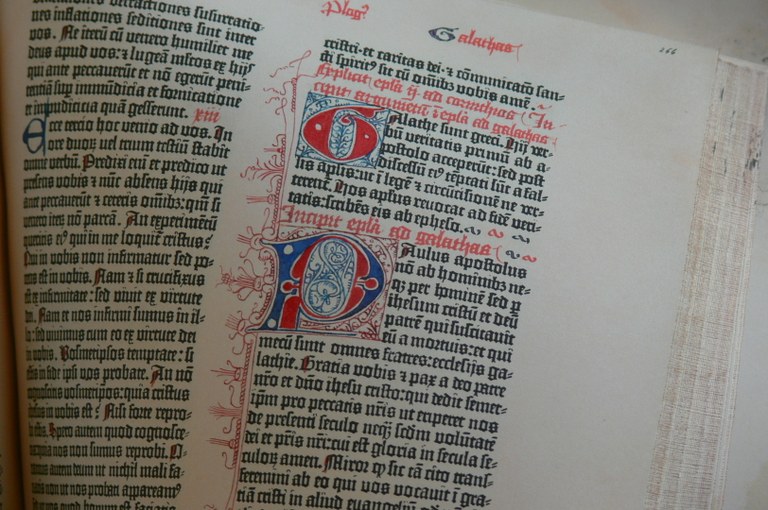 Plog?
Galathas
266
nes inflaciones sediciones sint inter
vos. Ne iterū cū venero humiliet me
deus apud vos: ⁊ lugeā mltos ex hijs
qui ante peccaverūt et nō egerūt peni-
tentiā sup immūdicia et fornicatione
et impudicicia quā gesserunt. xiii
Ecce tercio hoc venio ad vos. In
ore duorū vel trium testiū stabit
omne verbū. Predixi eni et predico ut
presens vobis ⁊ nūc absens hijs qui
ante peccaverūt et ceteris omībz: qm̄ si
venero iterū nō parcā. An experimētū
queritis ei⁹ qui in me loquit̄ cristus?
Qui in vobis non infirmatur sed po-
tens est in vobis. Nam ⁊ si crucifixus
est ex infirmitate: sed vivit ex virtute
dei. Nam et nos infirmi sumus in il-
lo: sed vivimus cum eo ex virtute dei
in vobis. Vosmetipsos temptate: si
estis in fide ipsi vos probate. An nō
cognoscitis vosmetipsos: quia cristus
ihesus in vobis est? Nisi forte repro-
bi estis. Spero autem quod cognosce-
tis quia nos non sumus reprobi.
autem deum ut nichil mali fa-
non ut nos probati appaream⁹
vos quod bonum est faciatis
cristi · et caritas dei · ⁊ cōmunicacō san-
cti spirit⁹ sit cū omībz vobis amē.
Explicit epl̄a ij ad corinthios In-
cipit argumentū ī epl̄a ad galathas
Galathe sunt greci. Hij ver-
bū veritatis primū ab a-
postolo acceperūt: sed post
discessū ei⁹ tēptati sūt a fal-
sis aplis: ut ī legē ⁊ circūcisionē ne ver-
terent. Hos aplus revocat ad fidē veri-
tatis: scribēs eis ab epheso.
Incipit epl̄a ad galathas
Paulus apostolus
nō ab hominibz ne-
q; per hominē sed p
ihesum cristū et deū
patrē qui suscitavit
eū a mortuis: et qui
mecū sunt omnes fratres: ecclesijs ga-
lathie. Gratia vobis ⁊ pax a deo patre
nr̄o et dn̄o ihesu cristo: qui dedit semet-
ipm̄ pro peccatis nr̄is ut eriperet nos
de presenti seculo neq̄ scd̄m volūtatē
dei et pr̄is nr̄i: cui est gloria in secula se-
culor̄ amen. Miror q; sic tā cito trans-
feremini ab eo qui vos vocavit ī gra-
tiā cristi in aliud evangeliū